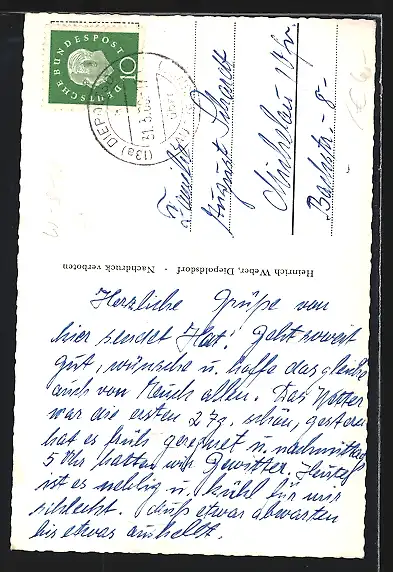 DEUTSCHE BUNDESPOST
10
(13a) DIEPOLDSDORF
Familie
August Schardt
Michelau Ofr.
Bachstr. -8-
Heinrich Weber, Diepoldsdorf · Nachdruck verboten
Herzliche Grüße von
hier sendet Geht soweit
gut, wünsche u. hoffe das gleiche
auch von Euch allen. Das Wetter
war die ersten 2 Tg. schön, gestern
hat es früh geregnet u. nachmittag
5 Uhr hatten wir Gewitter. Heute
ist es neblig u. kühl für mich
schlecht. Muß etwas abwarten
bis etwas aufhellt.